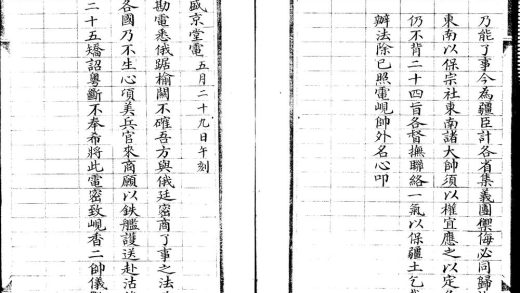 乃能了事今為疆臣計各省集義團禦侮必同歸
東南以保宗社東南諸大帥須以權宜應之以定
仍不背二十四旨各督撫聯絡一氣以保疆土乞
辦法除已照電峴帥外名心叩
盛京堂電五月二十九日午刻
勘電悉俄踞榆關不確吾方與俄廷密商了事之法
各國乃不生心頃美兵官來商願以鉄艦護送赴沽
二十五矯詔粵斷不奉希將此電密致峴香二帥儀